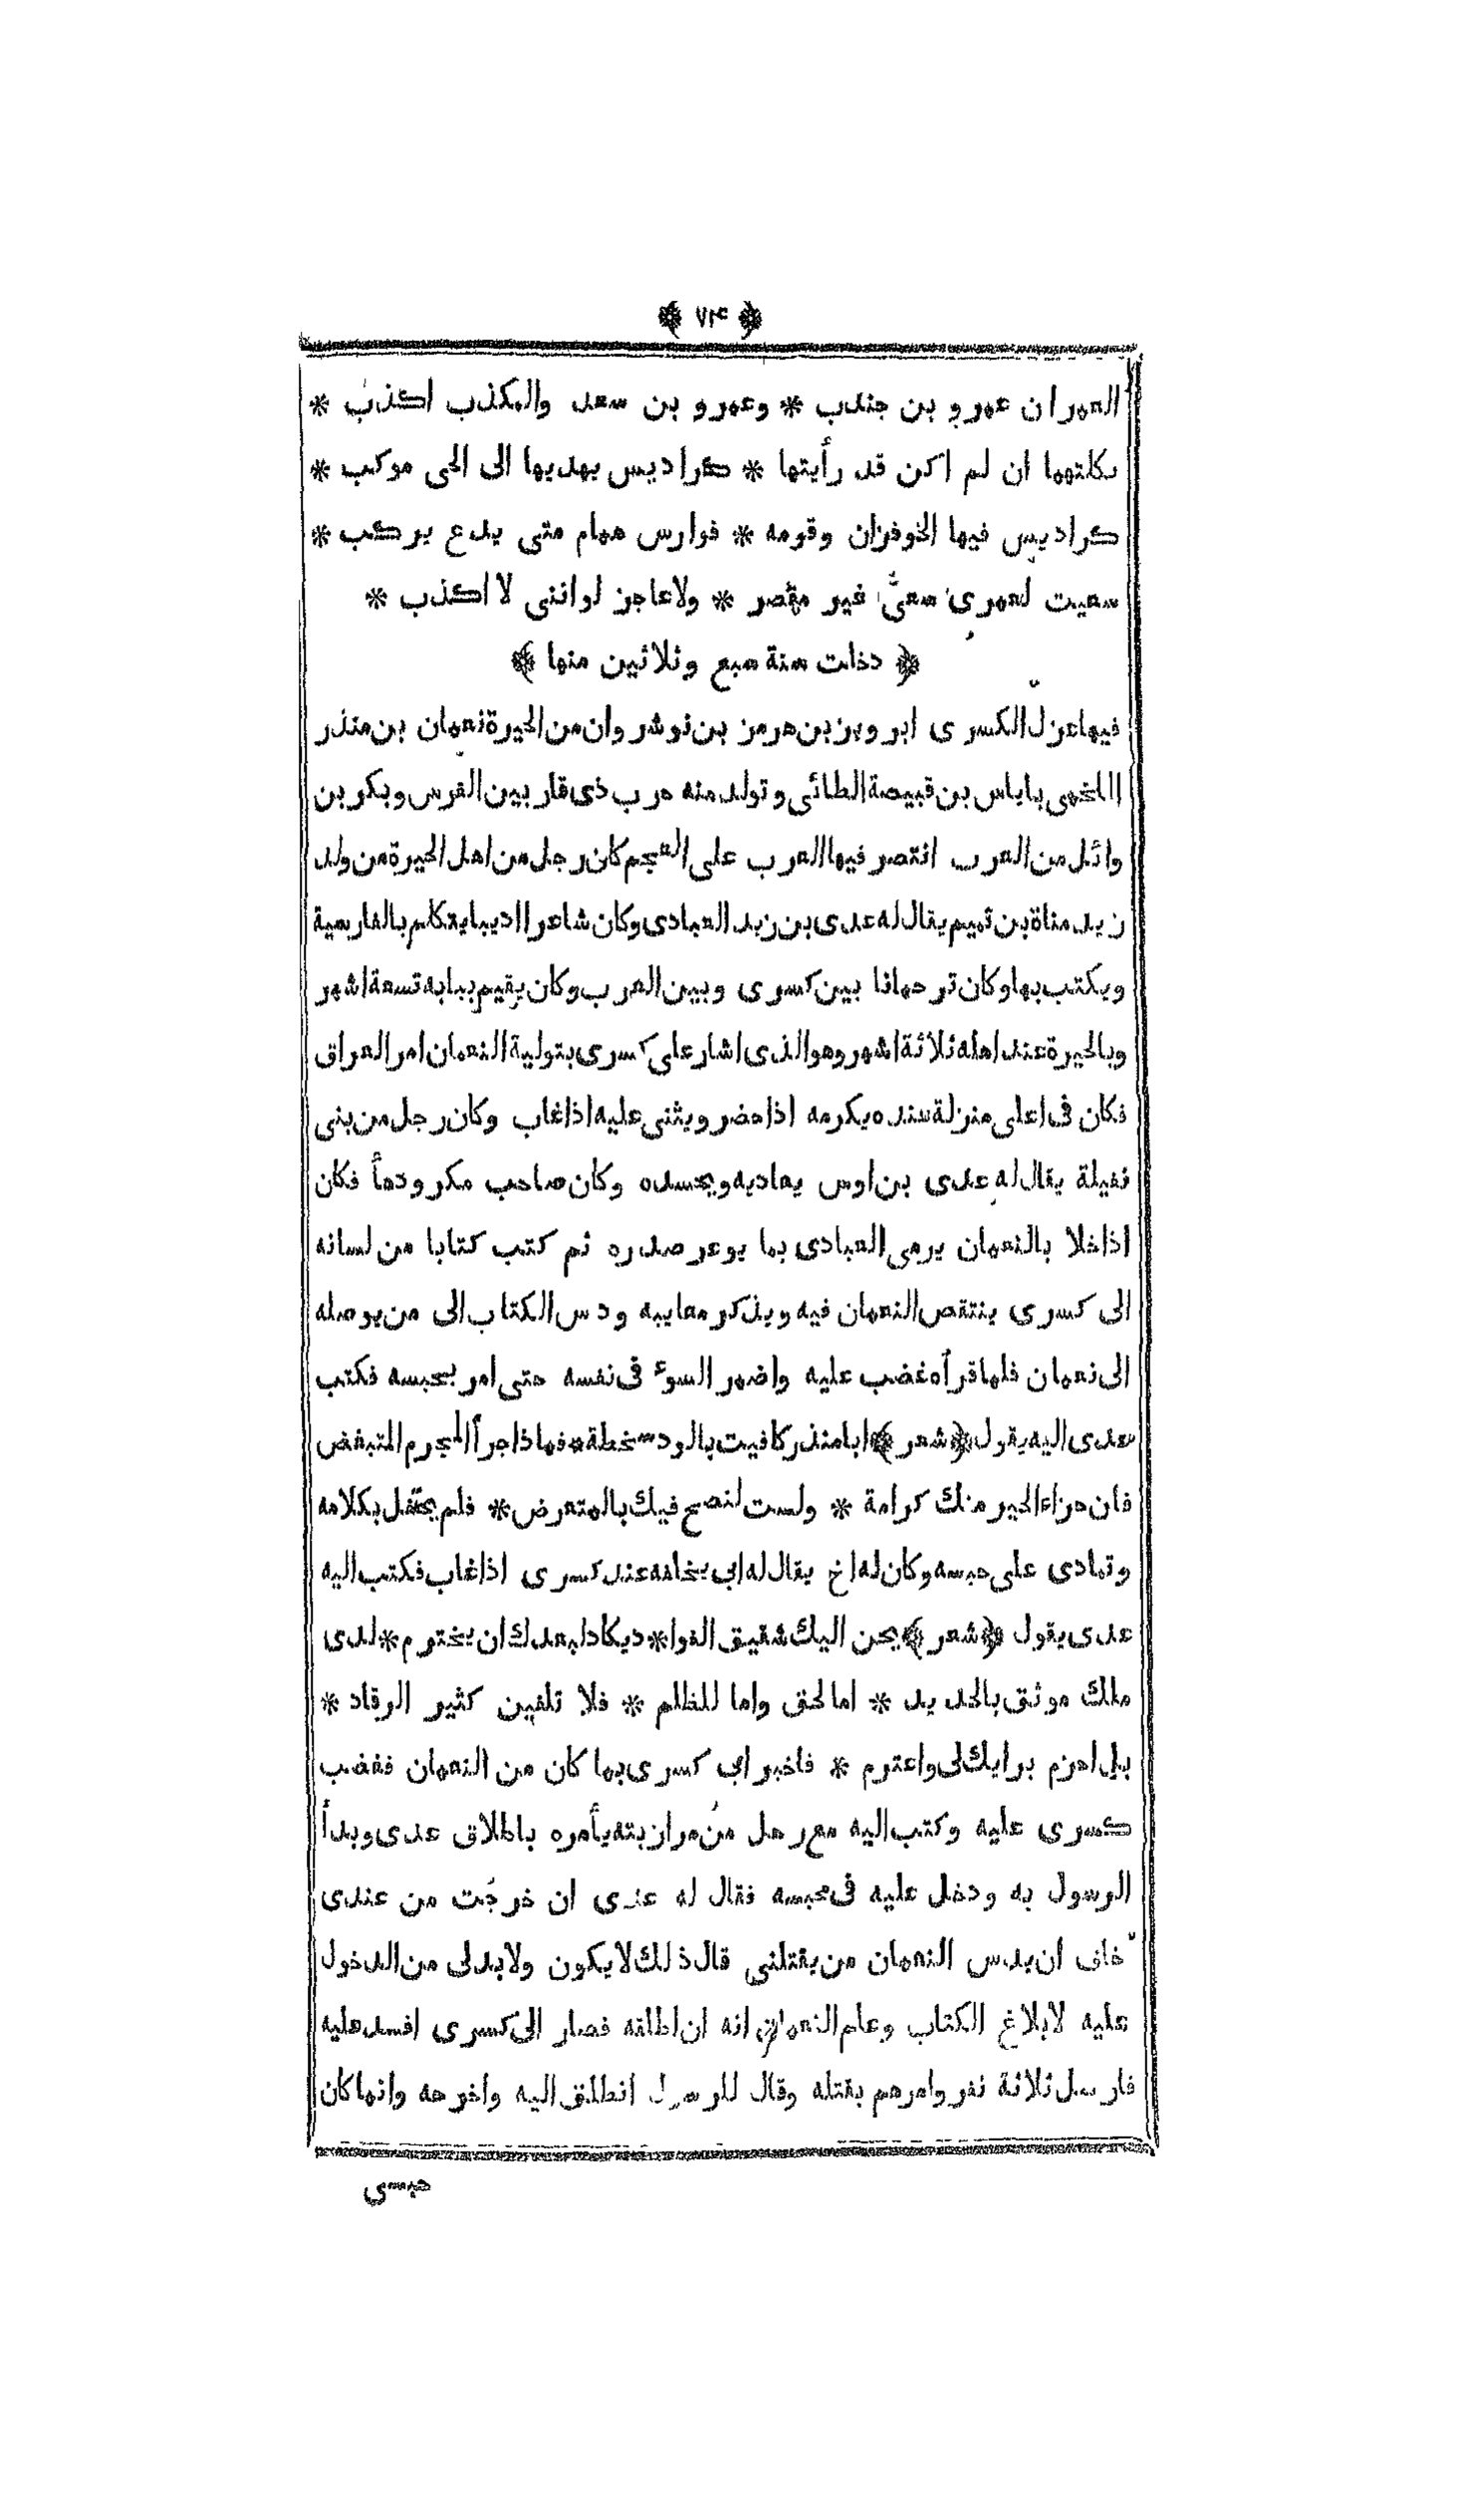 ﴿ ٧٤ ﴾
العمران عمرو بن جندب * وعمرو بن سعد والمكذب اكذب *
ثكلتهما ان لم اكن قد رأيتها * كراديس يهديها الى الحى موكب *
كراديس فيها الخوفزان وقومه * فوارس همام متى يدع يركب *
سعيت لعمرى سعىَّ غير مقصر * ولاعاجز لواننى لا اكذب *
﴿ دخلت سنة سبع وثلاثين منها ﴾
فيها عزل الكسرى ابرويز بن هرمز بن نوشروان من الحيرة نعمان بن منذر
اللخمى باياس بن قبيصة الطائى وتولد منه حرب ذى قار بين الفرس وبكر بن
وائل من العرب انتصر فيها العرب على العجم كان رجل من اهل الحيرة من ولد
زيد مناة بن تميم يقال له عدى بن زيد العبادى وكان شاعرا اديبا يتكلم بالفارسية
ويكتب بها وكان ترجمانا بين كسرى وبين العرب وكان يقيم ببابه تسعة اشهر
وبالحيرة عند اهله ثلاثة اشهر وهو الذى اشار على كسرى بتولية النعمان امر العراق
فكان فى اعلى منزلة عنده يكرمه اذا حضر ويثنى عليه اذا غاب وكان رجل من بنى
نفيلة يقال له عدى بن اوس يعاديه ويحسده وكان صاحب مكر ودهأ فكان
اذا خلا بالنعمان يرمى العبادى بما يوعر صدره ثم كتب كتابا من لسانه
الى كسرى ينتقص النعمان فيه ويذكر معايبه ودس الكتاب الى من يوصله
الى نعمان فلما قرأه غضب عليه واضمر السوء فى نفسه حتى امر بحبسه فكتب
عدى اليه يقول ﴿شعر﴾ ابا منذر كافيت بالود سخطة * فماذا جرأ المجرم المتبغض
فان جزاء الخير منك كرامة * ولست لنصح فيك بالمتعرض * فلم يحتفل بكلامه
وتمادى على حبسه وكان له اخ يقال له ابى يخلفه عند كسرى اذا غاب فكتب اليه
عدى يقول ﴿شعر﴾ يحن اليك شقيق الفوا * ديكاد لبعدك ان يخترم * لدى
ملك موثق بالحديد * اما لحق واما للظلم * فلا تلفين كثير الرقاد *
بل احزم برايك لى واعترم * فاخبر ابى كسرى بما كان من النعمان فغضب
كسرى عليه وكتب اليه مع رجل من مرازبته يأمره باطلاق عدى وبدأ
الرسول به ودخل عليه فى محبسه فقال له عدى ان خرجت من عندى
خاف ان يدس النعمان من يقتلنى قال ذلك لا يكون ولابد لى من الدخول
عليه لابلاغ الكتاب وعلم النعمان انه ان اطلقه فصار الى كسرى افسد عليه
فارسل ثلاثة نفر وامرهم بقتله وقال للرسول انطلق اليه واخرجه وانما كان
حبسى